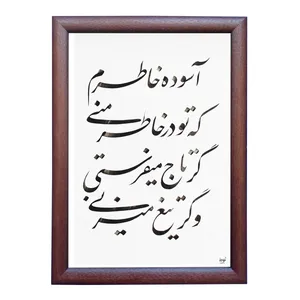 آسوده خاطرم
که تو در خاطر منی
گر تاج میفرستی
وگر تیغ میزنی